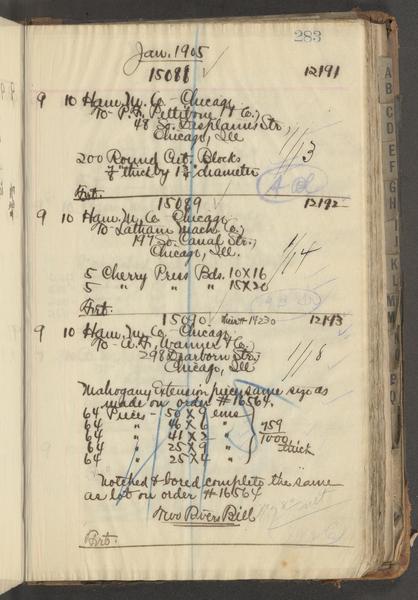 283
Jan. 1905
15081 12191
9 10 Ham. M. Co. - Chicago
To - P. F. Pettibone & Co.,
48 So. Desplaines Str.,
Chicago, Ill
1/13
200 Round Cut. Blocks
7/8" thick by 1 3/4" diameter
Frt.
15089 12192
9 10 Ham. M. Co. Chicago
To Latham Mach. Co.,
197 So. Canal Str.,
Chicago, Ill.
1/14
5 Cherry Press Bds. 10X16
5 " " " 15X20
Frt.
15090 Their # 19230 12193
9 10 Ham. M. Co., Chicago
To - A. F. Wanner & Co.
298 Dearborn Str.
Chicago, Ill
1/18
Mahogany Extension pieces same size as
made on order # 16564.
64 Pieces - 50 X 9 ems
64 " 46 X 6 "
64 " 41 X 2 "
64 " 25 X 9 "
64 " 25 X 4 "
759/1000 thick
Notched & bored complete the same
as lot on order # 16564
Two Rivers Bill
Frt.
A
B
C
D
E
F
G
H
I
J
K
L
M